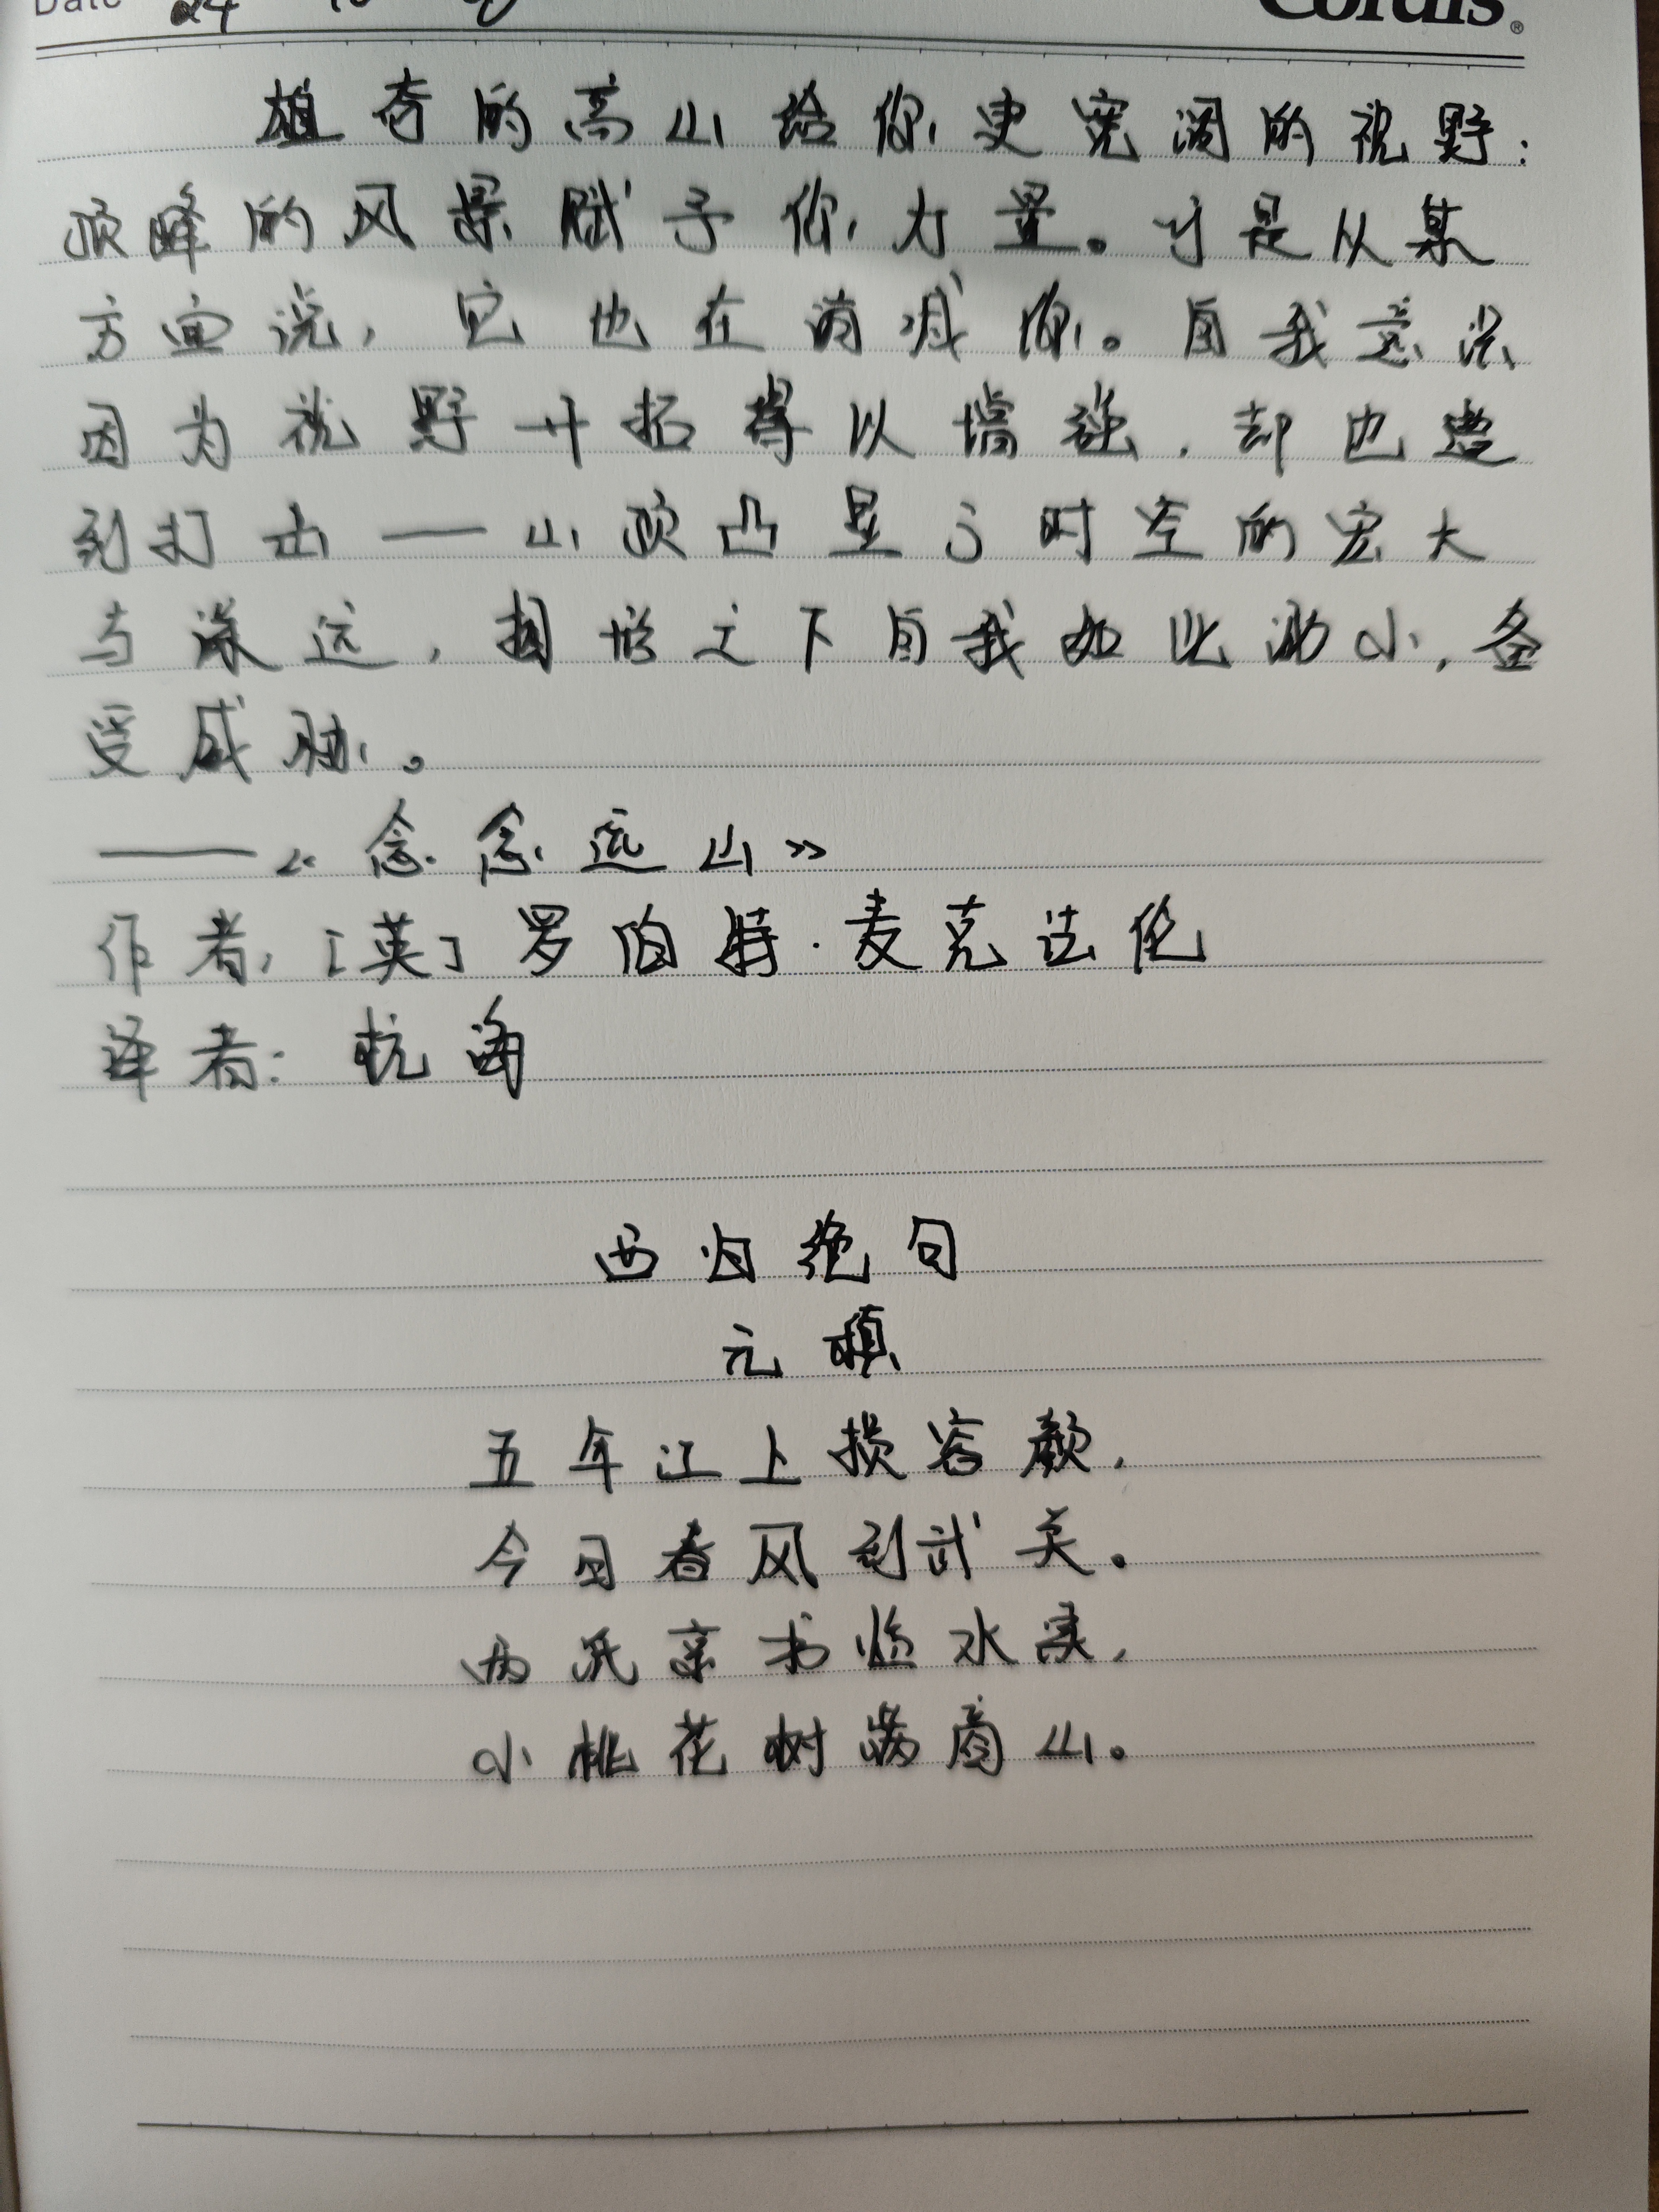 Date 24 10
Cordis®
雄奇的高山给你更宽阔的视野:
顶峰的风景赋予你力量。于是从某
方面说,它也在消减你。自我意识
因为视野开拓得以增强,却也遭
到打击——山顶凸显了时空的宏大
与深远,相形之下自我如此渺小,备
受威胁。
——《念念远山》
作者:[英]罗伯特·麦克法伦
译者:杭海
西归绝句
元稹
五年江上损容颜,
今日春风到武关。
两纸京书临水读,
小桃花树满商山。